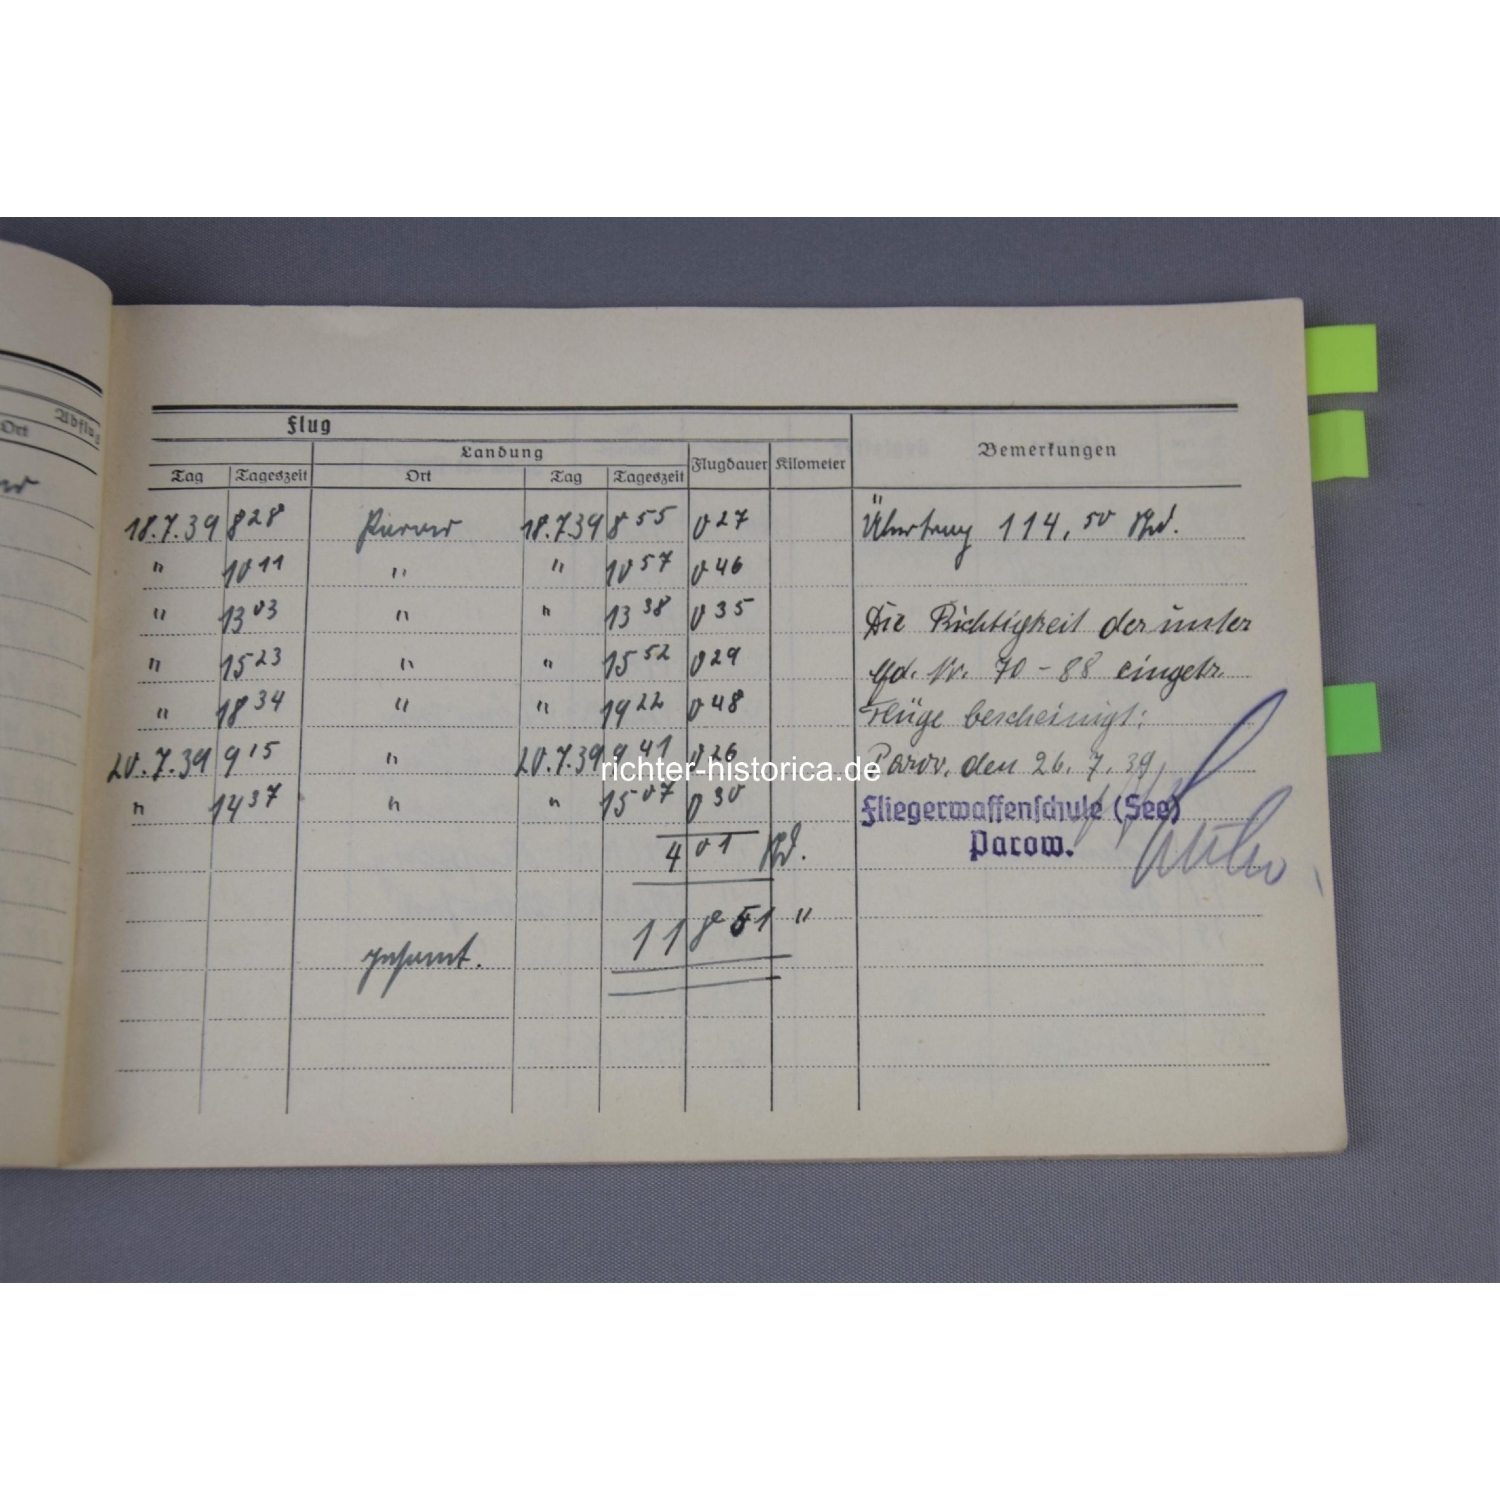 Abflug
Ort
Flug
Landung
Bemerkungen
Tag Tageszeit Ort Tag Tageszeit Flugdauer Kilometer
18.7.39 8 28 Parow 18.7.39 8 55 0 27 Übertrag 114,50 Std.
" 10 11 " " 10 57 0 46
" 13 03 " " 13 38 0 35 Die Richtigkeit der unter
" 15 23 " " 15 52 0 29 lfd. Nr. 70 - 88 eingetr.
" 18 34 " " 19 22 0 48 Flüge bescheinigt:
20.7.39 9 15 " 20.7.39 9 41 0 26 Parow, den 26.7.39.
richter-historica.de
" 14 37 " " 15 07 0 30 Fliegerwaffenschule (See)
4 01 Std. Parow.
11 51 "
gesamt.